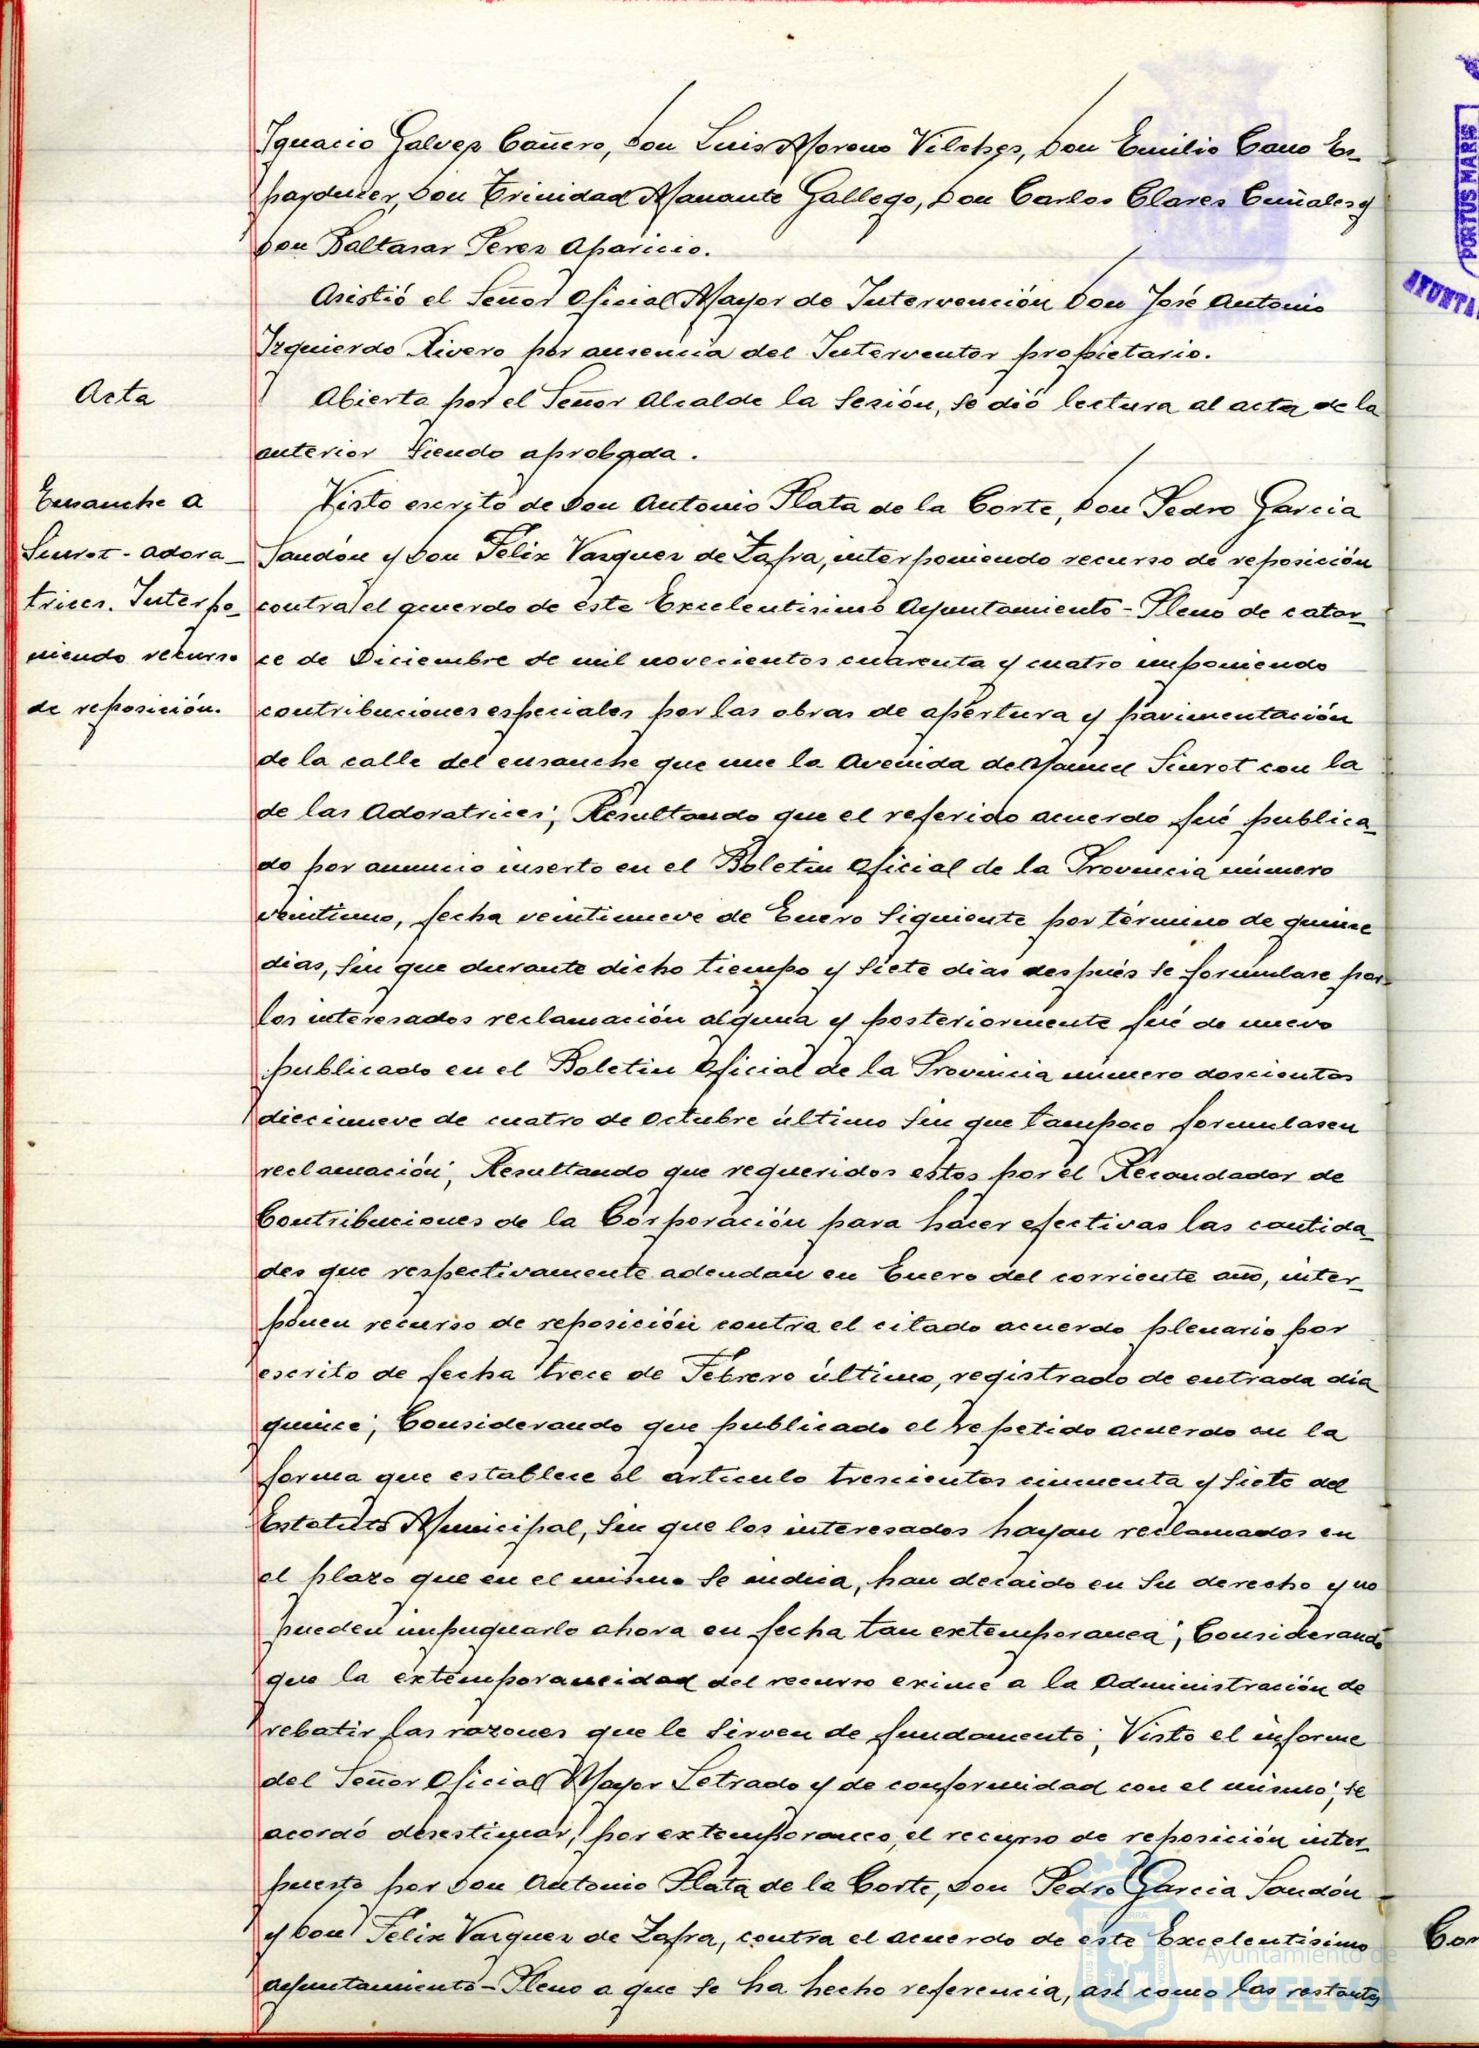 Ignacio Galvez Cañero, Don Luis Moreno Vilches, Don Emilio Cano Es-
parducer, Don Trinidad Manante Gallego, Don Carlos Clares Cuñales y
Don Baltasar Perez Aparicio.
Asistió el Señor Oficial Mayor de Intervención Don José Antonio
Izquierdo Rivero por ausencia del Interventor propietario.
Acta
Abierta por el Señor Alcalde la Sesión, se dió lectura al acta de la
anterior siendo aprobada.
Ensanche a
Siurot-adora-
trices. Interpo-
niendo recurso
de reposición.
Visto escrito de Don Antonio Plata de la Corte, Don Pedro Garcia
Sandón y Don Felix Vazquez de Zafra, interponiendo recurso de reposición
contra el acuerdo de este Excelentisimo Ayuntamiento-Pleno de cator-
ce de Diciembre de mil novecientos cuarenta y cuatro imponiendo
contribuciones especiales por las obras de apertura y pavimentación
de la calle del ensanche que une la Avenida de Manuel Siurot con la
de las Adoratrices; Resultando que el referido acuerdo fué publica-
do por anuncio inserto en el Boletin Oficial de la Provincia número
veintiuno, fecha veintinueve de Enero siguiente por término de quince
dias, sin que durante dicho tiempo y siete dias después se formulase por
los interesados reclamación alguna y posteriormente fué de nuevo
publicado en el Boletin Oficial de la Provincia número doscientos
diecinueve de cuatro de Octubre último sin que tampoco formulasen
reclamación; Resultando que requeridos estos por el Recaudador de
Contribuciones de la Corporación para hacer efectivas las cantida-
des que respectivamente adeudan en Enero del corriente año, inter-
ponen recurso de reposición contra el citado acuerdo plenario por
escrito de fecha trece de Febrero último, registrado de entrada dia
quince; Considerando que publicado el repetido acuerdo en la
forma que establece el articulo trescientos cincuenta y siete del
Estatuto Municipal, sin que los interesados hayan reclamados en
el plazo que en el mismo se indica, han decaido en su derecho y no
pueden impugnarlo ahora en fecha tan extemporanea; Considerando
que la extemporaneidad del recurso exime a la Administración de
rebatir las razones que le sirven de fundamento; Visto el informe
del Señor Oficial Mayor Letrado y de conformidad con el mismo; se
acordó desestimar, por extemporaneo, el recurso de reposición inter-
puesto por Don Antonio Plata de la Corte, Don Pedro Garcia Sandón
y Don Felix Vazquez de Zafra, contra el acuerdo de este Excelentisimo
Ayuntamiento-Pleno a que se ha hecho referencia, así como las restantes
PORTUS MARIS
AYUNTA
Con
Ayuntamiento de
HUELVA